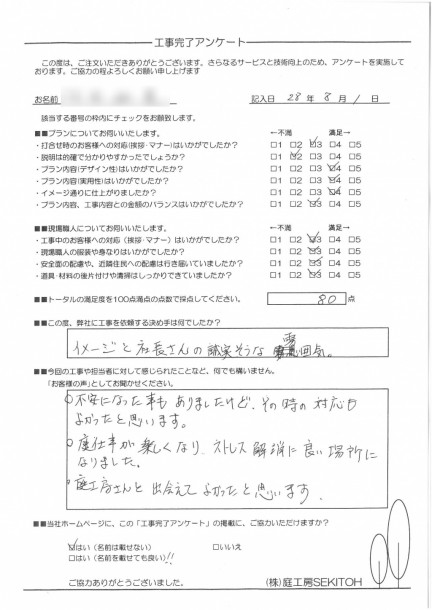 工事完了アンケート
この度は、ご注文いただきありがとうございます。さらなるサービスと技術向上のため、アンケートを実施して
おります。ご協力の程よろしくお願い申し上げます
お名前 記入日 28 年 8 月 1 日
該当する番号の枠内にチェックをお願致します。
■■プランについてお伺いいたします。 ←不満 満足→
・打合せ時のお客様への対応(挨拶・マナー)はいかがでしたか? □1 □2 ☑3 □4 □5
・説明は的確で分かりやすかったでしょうか? □1 ☑2 □3 □4 □5
・プラン内容(デザイン性)はいかがでしたか? □1 □2 □3 ☑4 □5
・プラン内容(実用性)はいかがでしたか? □1 □2 □3 ☑4 □5
・イメージ通りに仕上がりましたか? □1 □2 □3 ☑4 □5
・プラン内容、工事内容との金額のバランスはいかがでしたか? □1 □2 ☑3 □4 □5
■■現場職人についてお伺いいたします。 ←不満 満足→
・工事中のお客様への対応(挨拶・マナー)はいかがでしたか? □1 □2 ☑3 □4 □5
・現場職人の服装や身なりはいかがでしたか? □1 □2 ☑3 □4 □5
・安全面の配慮や、近隣住民への配慮は行き届いていましたか? □1 □2 ☑3 □4 □5
・道具・材料の後片付けや清掃はしっかりできていましたか? □1 □2 ☑3 □4 □5
■■トータルの満足度を100点満点の点数で採点してください。 80 点
■■この度、弊社に工事を依頼する決め手は何でしたか?
イメージと社長さんの誠実そうな雰囲気。
■■今回の工事や担当者に対して感じられたことなど、何でも構いません。
「お客様の声」としてお聞かせください。
○不安になった事もありましたけど、その時の対応も
よかったと思います。
○庭仕事が楽しくなり、ストレス解消に良い場所に
なりました。
○庭工房さんと出会えてよかったと思います。
■■当社ホームページに、この「工事完了アンケート」の掲載に、ご協力いただけますか?
☑はい(名前は載せない) □いいえ
□はい(名前を載せても良い)!!
ご協力ありがとうございました。
(株)庭工房SEKITOH